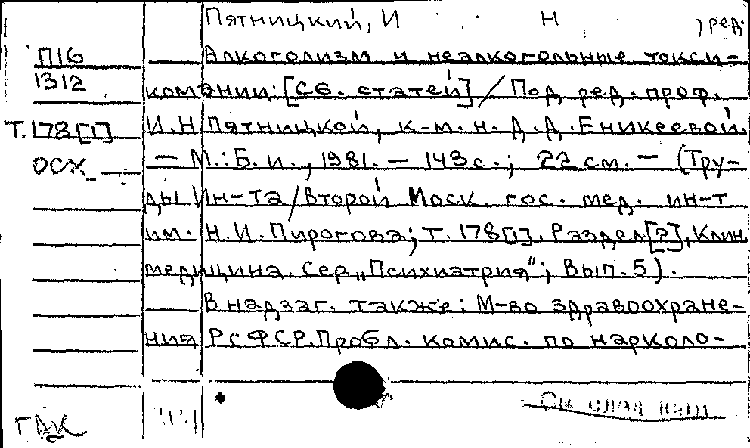 Пятницкий, И Н , ред.
П16 Алкоголизм и неалкогольные токси-
1312 комании: [Сб. статей] / Под ред. проф.
Т.178[1] И.Н Пятницкой, к.м.н. Д.Д. Еникеевой
ОСХ — М.: Б.и., 1981. — 143 с.; 22 см. — (Тру-
ды Ин-та / Второй Моск. гос. мед. ин-т
им. Н.И. Пирогова; Т. 178[1]. Раздел [?], Клин
медицина. Сер. „Психиатрия“; Вып. 5).
В надзаг. также: М-во здравоохране-
ния РСФСР. Пробл. комис. по нарколо-
См след карт